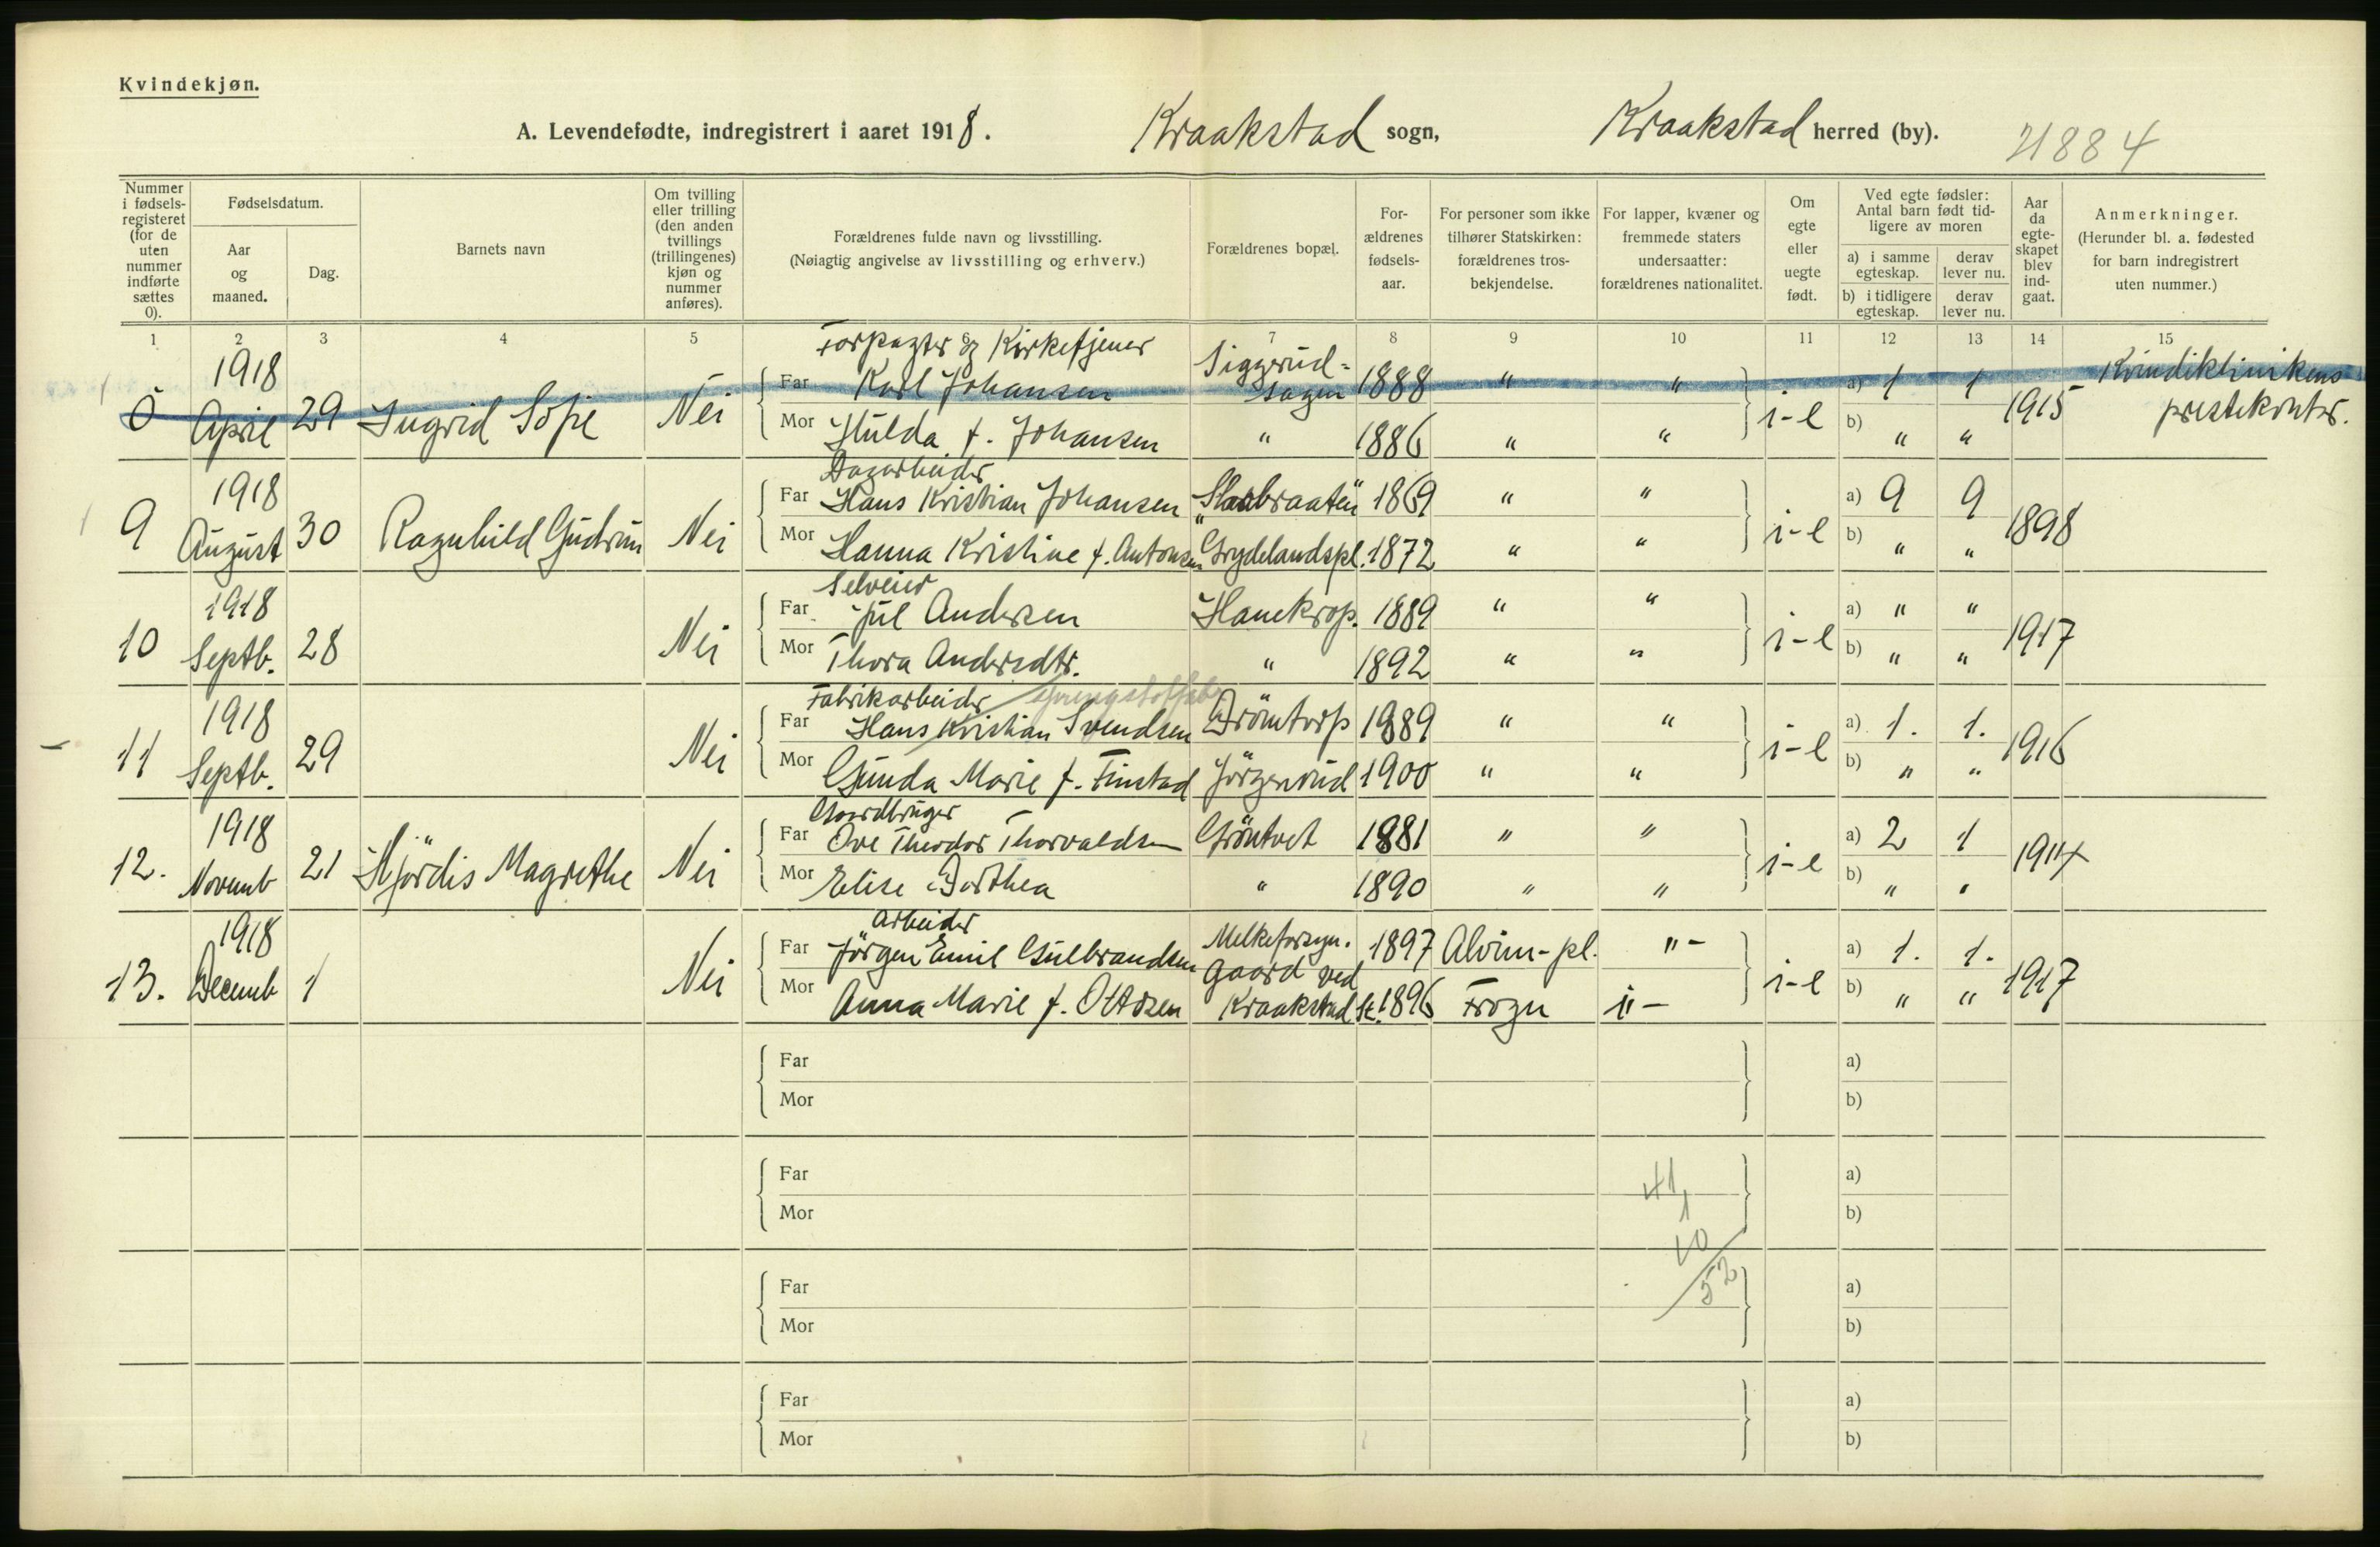 Kvindekjøn.
A. Levendefødte, indregistrert i aaret 1918. Kraakstad sogn, Kraakstad herred (by). 21884
Nummer i fødsels-registeret (for de uten nummer indførte sættes 0).
Fødselsdatum.
Aar og maaned.
Dag.
Barnets navn
Om tvilling eller trilling (den anden tvillings (trillingenes) kjøn og nummer anføres).
Forældrenes fulde navn og livsstilling.
(Nøiagtig angivelse av livsstilling og erhverv.)
Forældrenes bopæl.
For-ældrenes fødsels-aar.
For personer som ikke tilhører Statskirken: forældrenes tros-bekjendelse.
For lapper, kvæner og fremmede staters undersaatter: forældrenes nationalitet.
Om egte eller uegte født.
Ved egte fødsler: Antal barn født tid-ligere av moren
a) i samme egteskap.
derav lever nu.
b) i tidligere egteskap.
derav lever nu.
Aar da egte-skapet blev ind-gaat.
Anmerkninger.
(Herunder bl. a. fødested for barn indregistrert uten nummer.)
1 2 3 4 5 6 7 8 9 10 11 12 13 14 15
Forpagter og Kirketjener
0 1918 April 29 Ingrid Sofie Nei
Far Karl Johansen Siggerud-sagen 1888 " " a) 1 1
Mor Hulda f. Johansen " 1886 " " i-e b) " " 1915
Kvindeklinikens prestekontor.
Dagarbeider
9 1918 August 30 Ragnhild Gudrun Nei
Far Hans Kristian Johansen "Skarbraaten" 1869 " " a) 9 9
Mor Hanna Kristine f. Antonsen Grydelandspl. 1872 " " i-e b) " " 1898
Selveier
10 1918 Septb. 28 Nei
Far Jul Andersen Hanekrop. 1889 " " a) " "
Mor Thora Andersdtr. " 1892 " " i-e b) " " 1917
Fabrikarbeider
11 1918 Septb. 29 Nei
Far Hans Kristian Svendsen Drömtorp 1889 " " a) 1. 1.
Mor Gunda Marie f. Finstad Jörgenrud 1900 " " i-e b) " " 1916
Gaardbruger
12. 1918 Novemb 21 Hjördis Magrethe Nei
Far Ove Theodor Thorvaldsen Gröntvet 1881 " " a) 2 1
Mor Elise Dorthea " 1890 " " i-e b) " " 1914
Arbeider
13. 1918 Decemb 1 Nei
Far Jörgen Emil Gulbrandsen Melkeforsyn. 1897 Alvim-pl. "- a) 1. 1.
gaard ved
Mor Anna Marie f. Ottosen Kraakstad St. 1896 Frogn "- i-e b) " " 1917
Far a)
Mor b)
Far 41 a)
Mor 1 b)
10
Far 52 a)
Mor b)
Far a)
Mor b)